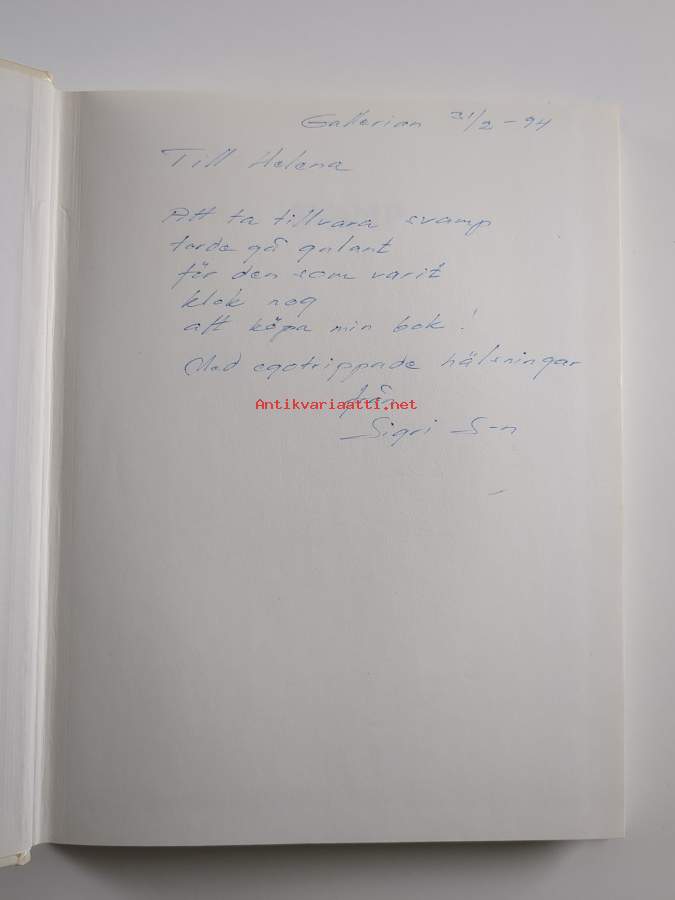 Gallerian 21/2 - 94
Till Helena
Att ta tillvara svamp
torde gå galant
för den som varit
klok nog
att köpa min bok!
Med egotrippade hälsningar
från
Antikvariaatti.net
Sigri S-n